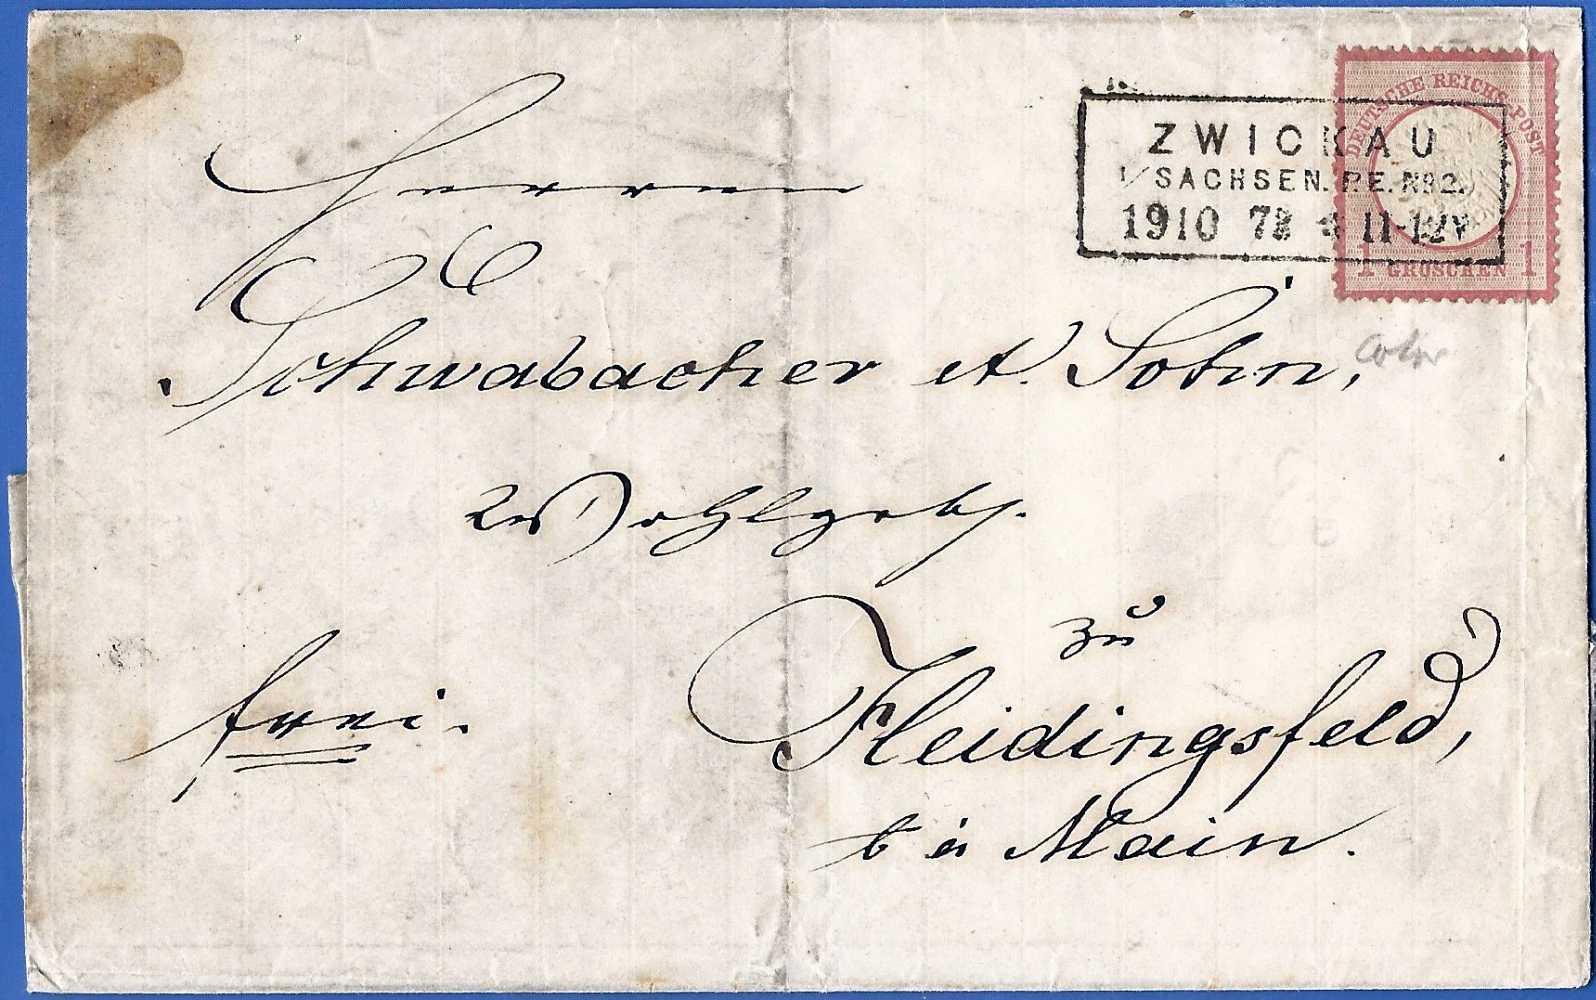 DEUTSCHE REICHS-POST
1 GROSCHEN 1
ZWICKAU
I/SACHSEN. P.E. No2.
19 10 72 11-12V
Herren
Schwabacher et. Sohn,
Wohlgeb.
zu
frei.
Heidingsfeld,
Main.